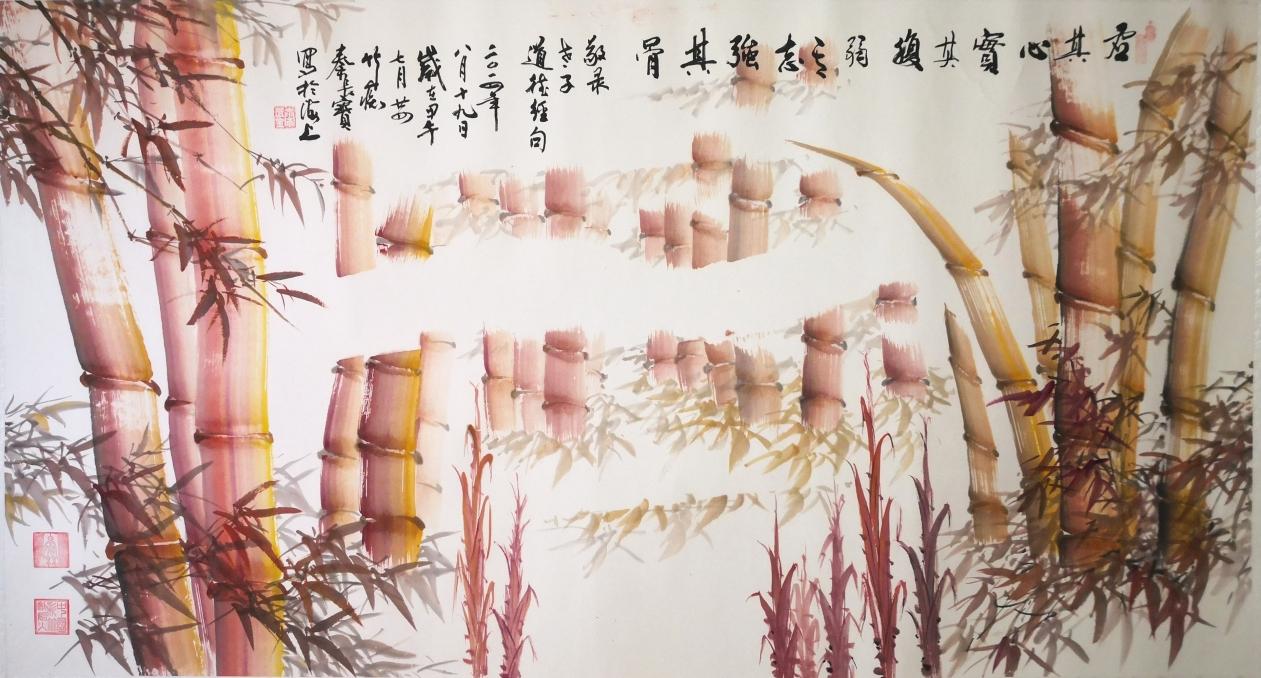 虚其心實其腹弱其志強其骨
敬录
老子
道德經句
二〇一四年
八月十九日
歲在甲午
七月廿四
竹痴
秦长寶
寫於海上